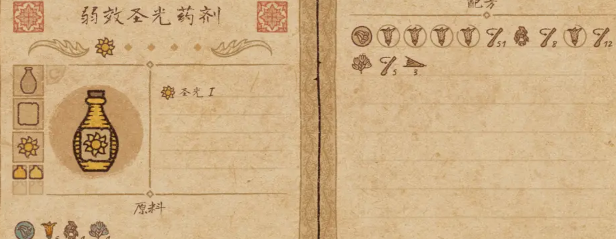 弱效圣光药剂
圣光 I
原料
配方
51 8 12
5 3